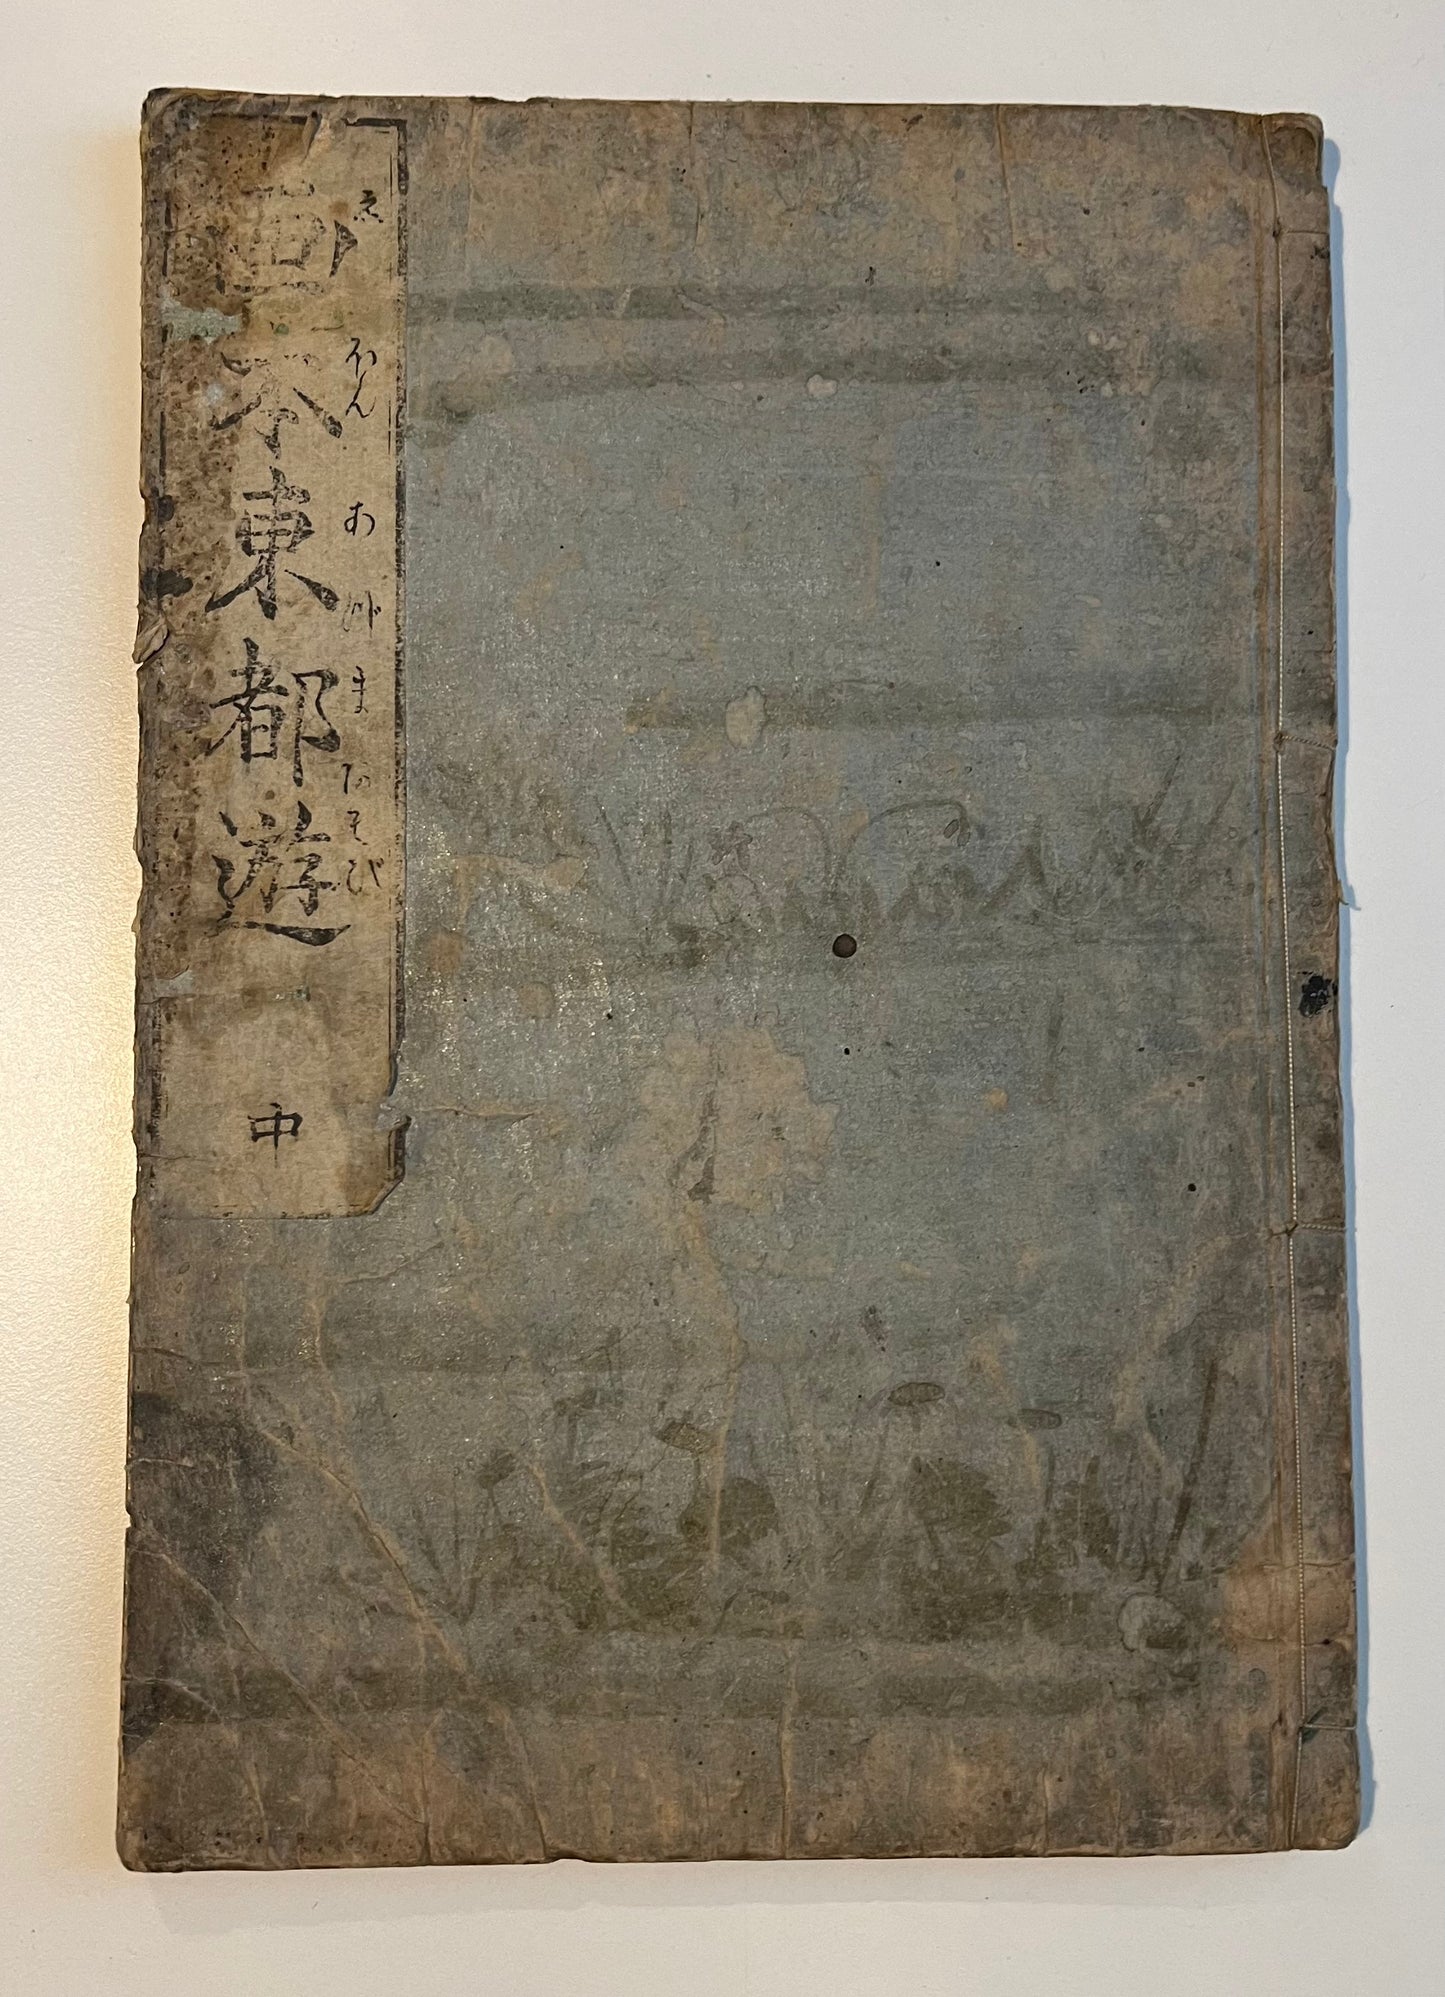 画本東都遊
ゑほんあづまあそび
中